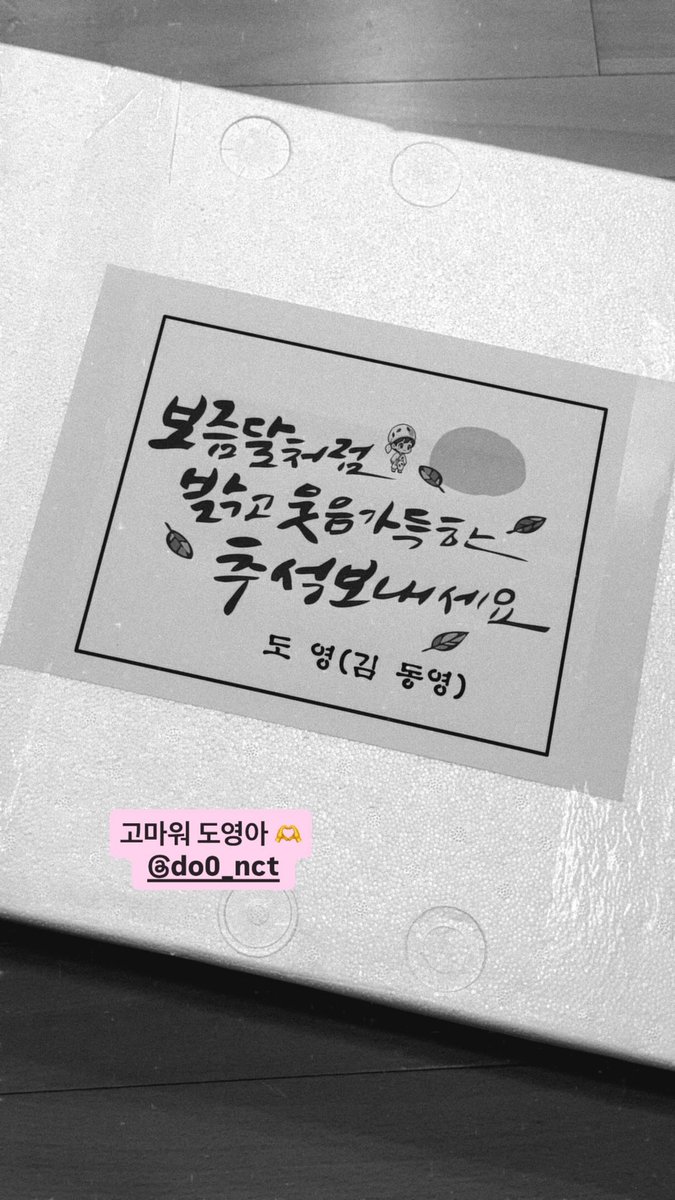 보름달처럼
밝고 웃음가득한
추석보내세요
도 영(김 동영)
고마워 도영아 🫶
@do0_nct